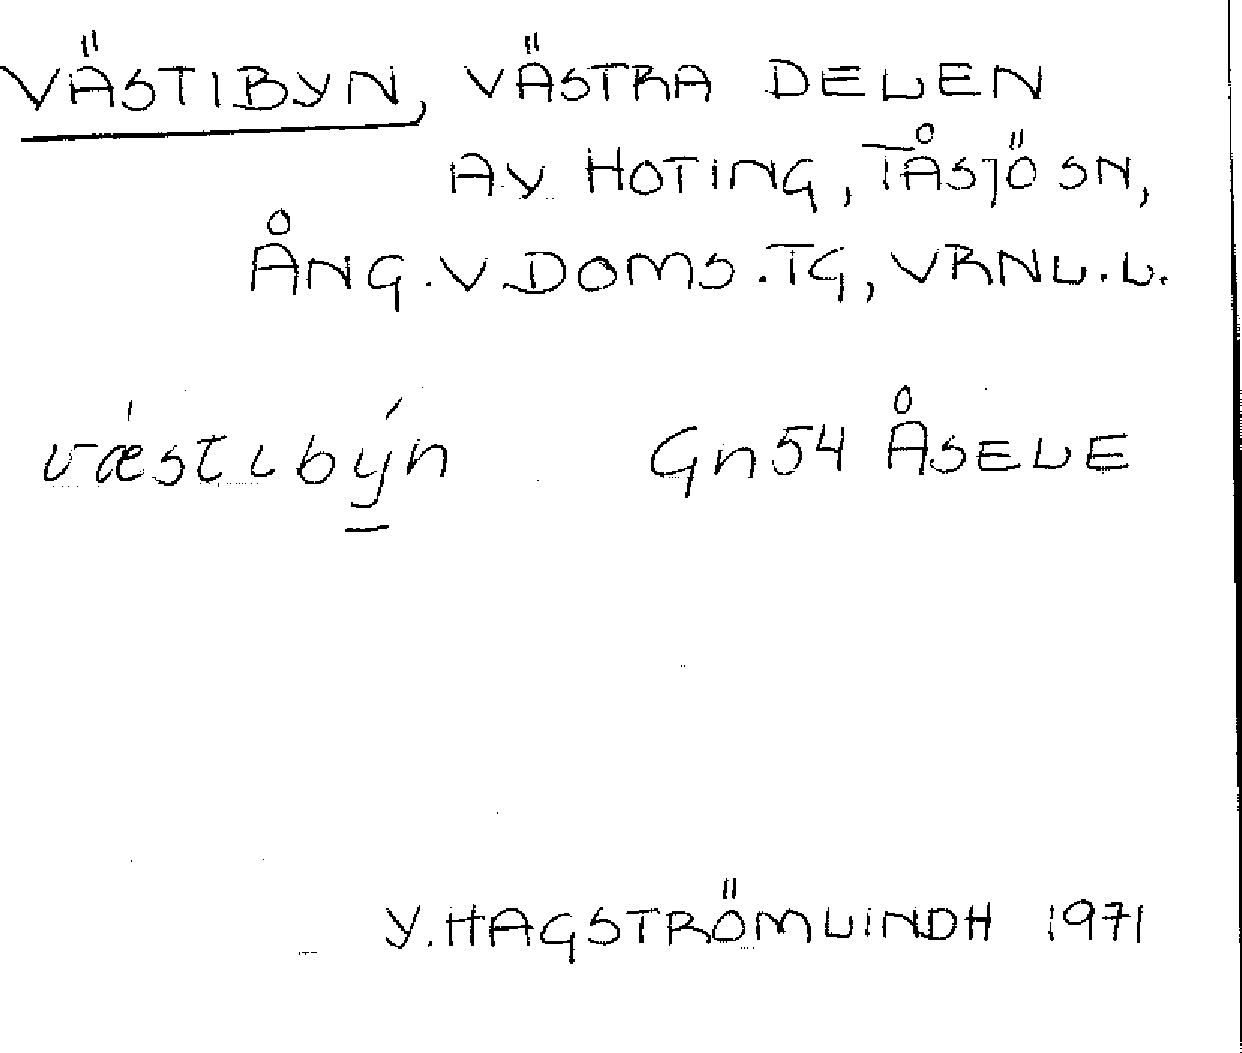 VÄSTIBYN, VÄSTRA DELEN
AV HOTING, TÅSJÖ SN,
ÅNG.V.DOMS.TG, VRNL.L.
væ̍stıbýn Gn54 ÅSELE
Y.HAGSTRÖMLINDH 1971